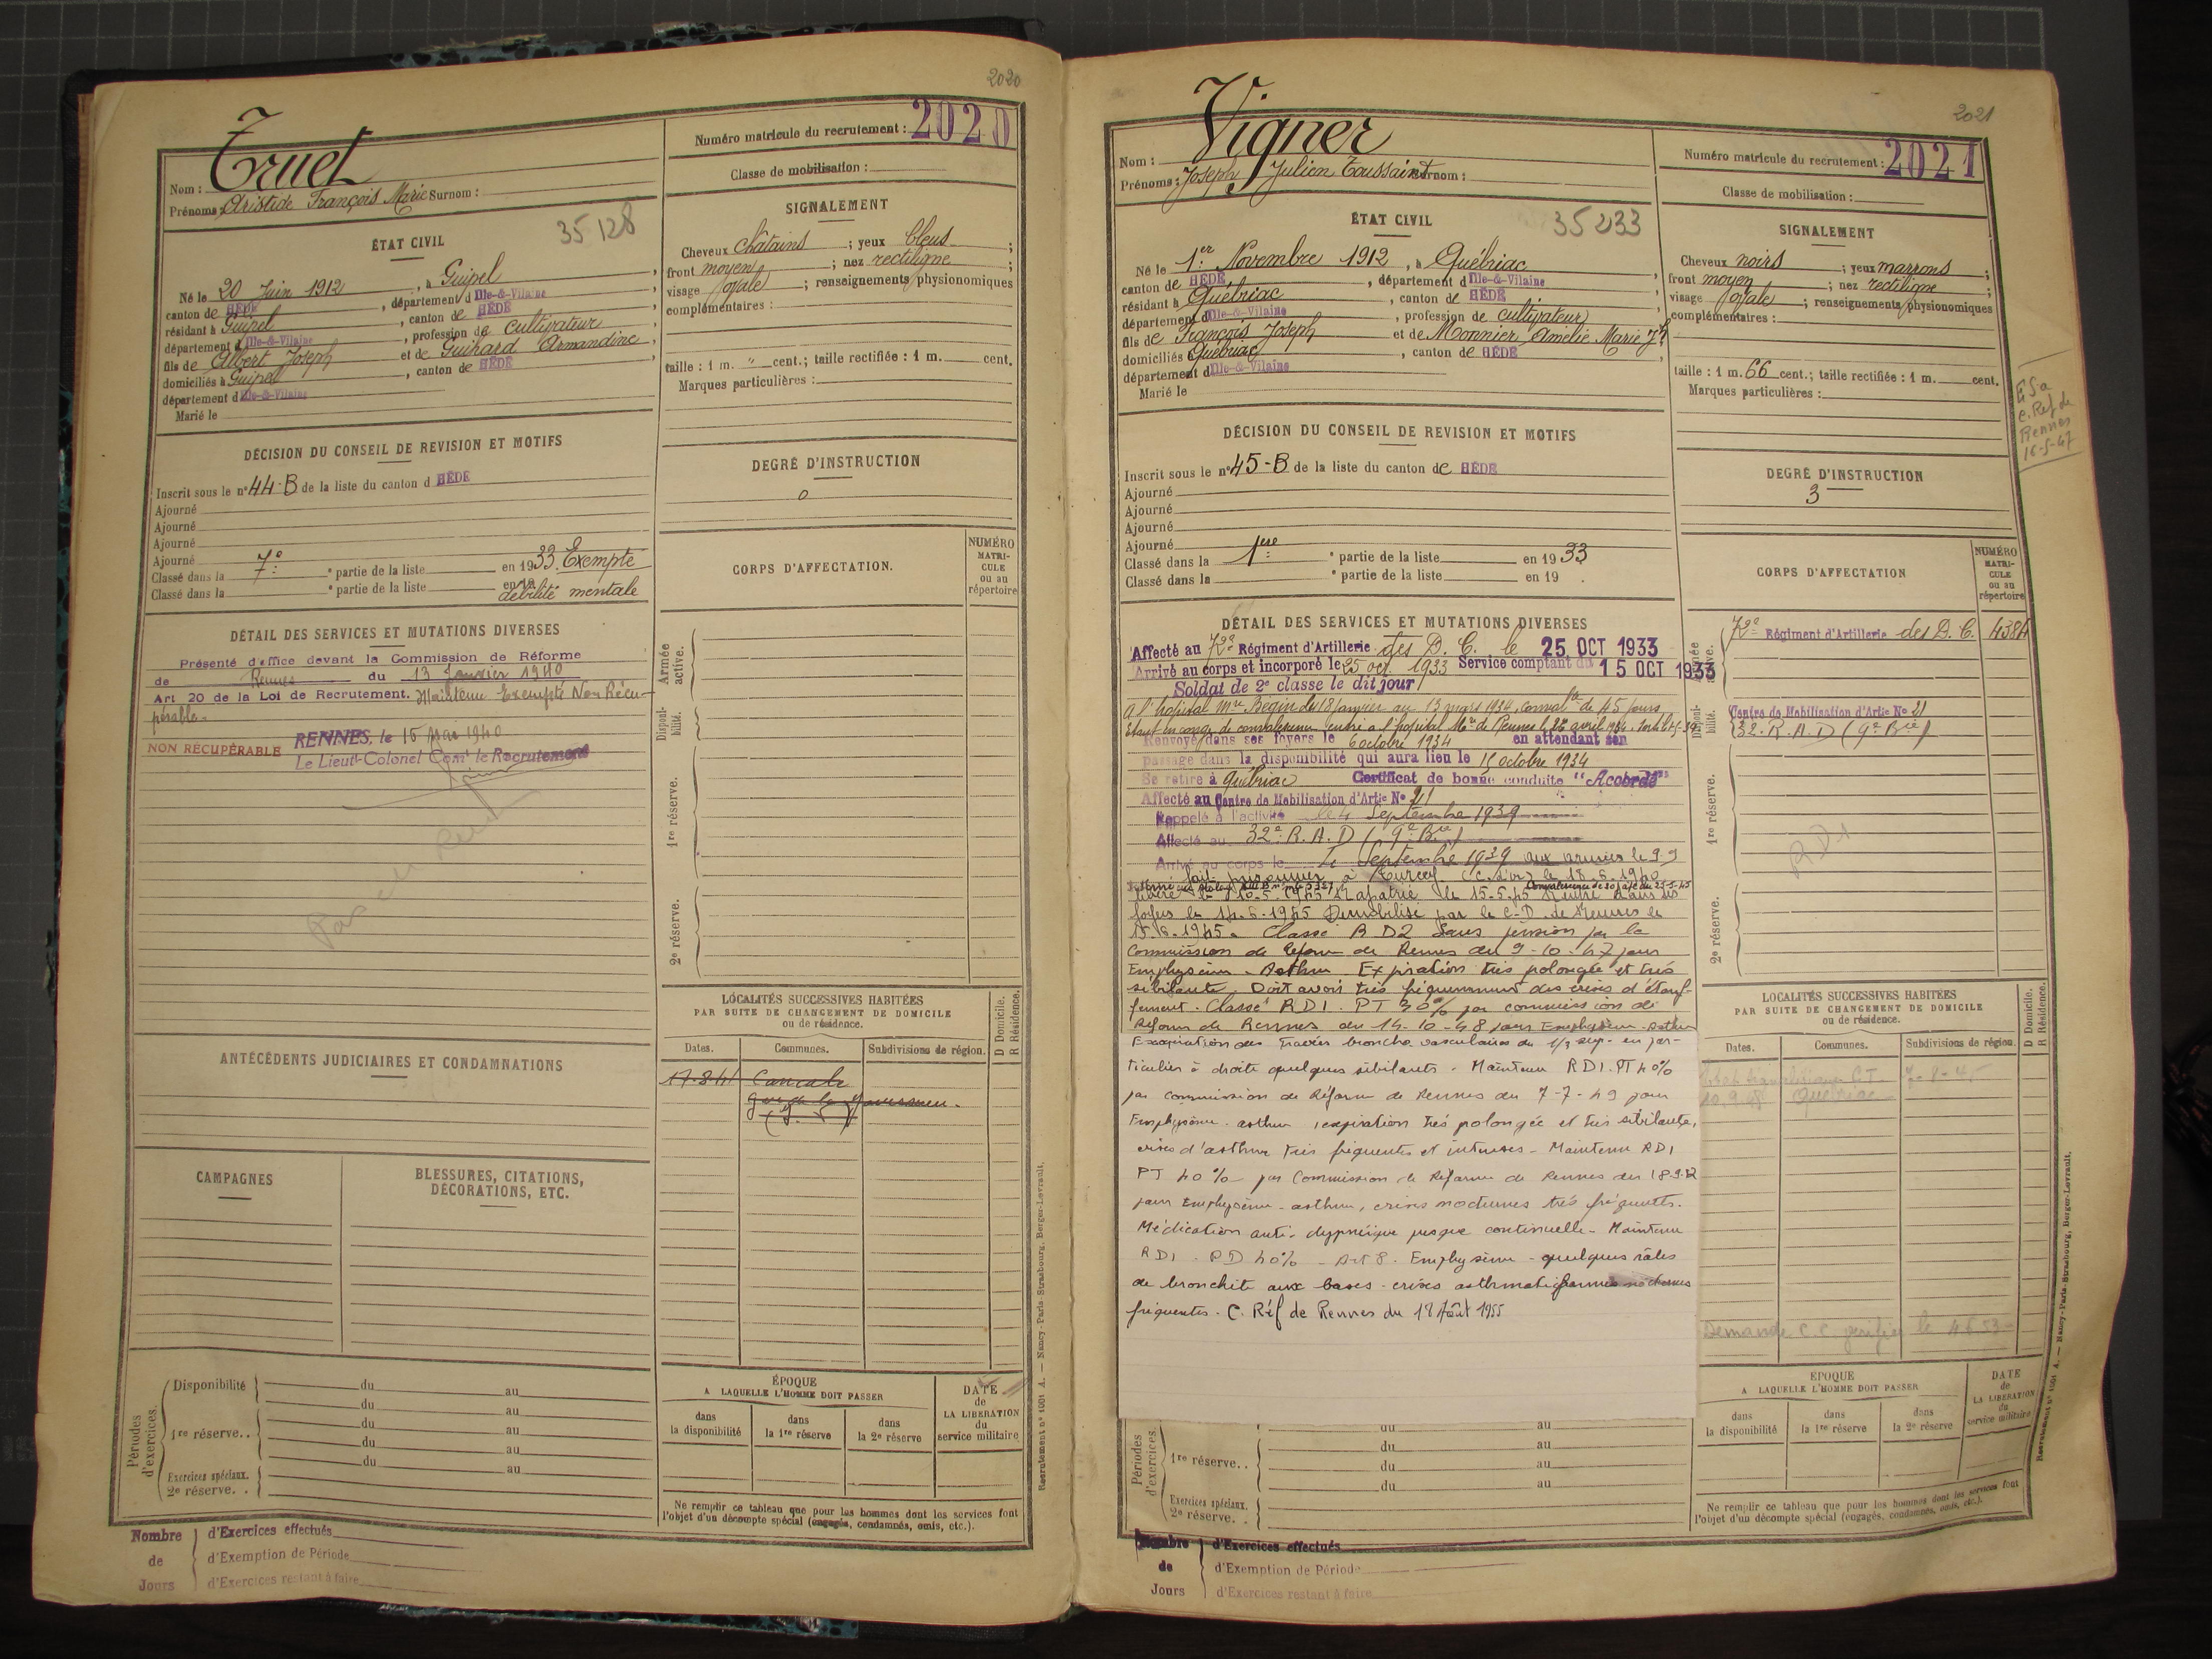 2020
Numéro matricule du recrutement : 2020
Nom : Truet
Prénoms : Aristide François Marie Surnom :
Classe de mobilisation :
35128
ÉTAT CIVIL
Né le 20 Juin 1912, à Guipel,
canton de HÉDÉ, département d'Ille-&-Vilaine
résidant à Guipel, canton de HÉDÉ
département d'Ille-&-Vilaine, profession de cultivateur
fils de Albert Joseph et de Guihard Armandine,
domiciliés à Guipel, canton de HÉDÉ,
département d'Ille-&-Vilaine
Marié le
SIGNALEMENT
Cheveux châtains ; yeux bleus ;
front moyen ; nez rectiligne ;
visage ovale ; renseignements physionomiques
complémentaires :
taille : 1 m. " cent.; taille rectifiée : 1 m. cent.
Marques particulières :
DÉCISION DU CONSEIL DE REVISION ET MOTIFS
Inscrit sous le n° 44-B de la liste du canton d HÉDÉ
Ajourné
Ajourné
Ajourné
Ajourné
Classé dans la 7e ° partie de la liste en 1933. Exempté
Classé dans la ° partie de la liste en 19 débilité mentale
DEGRÉ D'INSTRUCTION
0
CORPS D'AFFECTATION.
NUMÉRO
MATRI-
CULE
ou au
répertoire
DÉTAIL DES SERVICES ET MUTATIONS DIVERSES
Présenté d'office devant la Commission de Réforme
de Rennes du 13 Janvier 1940
Art 20 de la Loi de Recrutement. Maintenu Exempté Non Récu-
pérable.
NON RÉCUPÉRABLE RENNES, le 15 Mai 1940
Le Lieut-Colonel Comt le Recrutement
Armée
active.
Disponi-
bilité.
1re réserve.
2e réserve.
ANTÉCÉDENTS JUDICIAIRES ET CONDAMNATIONS
LOCALITÉS SUCCESSIVES HABITÉES
PAR SUITE DE CHANGEMENT DE DOMICILE
ou de résidence.
D Domicile.
R Résidence.
Dates. Communes. Subdivisions de région.
17-8-41 Cancale
CAMPAGNES
BLESSURES, CITATIONS,
DÉCORATIONS, ETC.
Périodes
d'exercices.
Disponibilité du au
du au
1re réserve.. du au
du au
du au
Exercices spéciaux.
2e réserve. .
ÉPOQUE
A LAQUELLE L'HOMME DOIT PASSER
dans
la disponibilité
dans
la 1re réserve
dans
la 2e réserve
DATE
de
LA LIBÉRATION
du
service militaire
Ne remplir ce tableau que pour les hommes dont les services font
l'objet d'un décompte spécial (engagés, condamnés, omis, etc.).
Nombre
de
Jours
d'Exercices effectués
d'Exemption de Période
d'Exercices restant à faire
Recrutement n° 1001 A. — Nancy-Paris-Strasbourg, Berger-Levrault.
2021
Numéro matricule du recrutement : 2021
Nom : Vigner
Prénoms : Joseph Julien Toussaint Surnom :
Classe de mobilisation :
35233
ÉTAT CIVIL
Né le 1er Novembre 1912, à Québriac,
canton de HÉDÉ, département d'Ille-&-Vilaine
résidant à Québriac, canton de HÉDÉ
département d'Ille-&-Vilaine, profession de cultivateur
fils de François Joseph et de Monnier Amélie Marie Jh
domiciliés à Québriac, canton de HÉDÉ
département d'Ille-&-Vilaine
Marié le
SIGNALEMENT
Cheveux noirs ; yeux marrons ;
front moyen ; nez rectiligne ;
visage ovale ; renseignements physionomiques
complémentaires :
taille : 1 m. 66 cent.; taille rectifiée : 1 m. cent.
Marques particulières :
c. Réf de
Rennes
16-5-47
DÉCISION DU CONSEIL DE REVISION ET MOTIFS
Inscrit sous le n° 45-B de la liste du canton de HÉDÉ
Ajourné
Ajourné
Ajourné
Ajourné
Classé dans la 1ère ° partie de la liste en 1933
Classé dans la ° partie de la liste en 19 .
DEGRÉ D'INSTRUCTION
3
CORPS D'AFFECTATION
NUMÉRO
MATRI-
CULE
ou au
répertoire
72e Régiment d'Artillerie des D. C. 4384
Centre de Mobilisation d'Artie N° 21
32. R.A.D (9e Bie)
RD1
DÉTAIL DES SERVICES ET MUTATIONS DIVERSES
Affecté au 72e Régiment d'Artillerie des D. C. le 25 OCT 1933
Arrivé au corps et incorporé le 25 oct. 1933 Service comptant du 15 OCT 1933
Soldat de 2e classe le dit jour
A l'hôpital mre Bégin du 18 Janvier au 13 mars 1934, convalce de 45 jours
Étant en congé de convalescence, entré à l'hôpital Mre de Rennes le 22 avril 1934
Renvoyé dans ses foyers le 6 octobre 1934 en attendant son
passage dans la disponibilité qui aura lieu le 15 octobre 1934
Se retire à Québriac Certificat de bonne conduite "Accordé"
Affecté au Centre de Mobilisation d'Artie N° 21
Rappelé à l'activité le 4 Septembre 1939
Affecté au 32e R.A.D (9e Bie)
Arrivé au corps le 4 Septembre 1939 aux armées le 9 9
fait prisonnier à le 18.6.1940
Rapatrié le 15-5-45 Rentré dans ses
foyers le 14-6-1945 Démobilisé par le C-D de Rennes le
15-6-1945. Classé RD2 Sans pension par la
Commission de Réforme de Rennes du 9-10-47 pour
Emphysème - Asthme Expiration très prolongée et très
sibilante. Doit avoir très fréquemment des crises d'étouf-
fement. Classé RD1. PT 30% par commission de
Réforme de Rennes du 14-10-48 pour Emphysème - Asthme
Exagération des Travées broncho vasculaires du 1/3 sup. en par-
ticulier à droite quelques sibilants. Maintenu RD1. PT 40%
par commission de Réforme de Rennes du 7-7-49 pour
Emphysème - asthme, expiration très prolongée et très sibilante,
crises d'asthme très fréquentes et intenses - Maintenu RD1
PT 40% par Commission de Réforme de Rennes du 18.9.52
pour Emphysème - asthme, crises nocturnes très fréquentes.
Médication anti-dyspnéique presque continuelle - Maintenu
RD1. PD 40% - Art 8. Emphysème - quelques râles
de bronchite aux bases - crises asthmatiformes nocturnes
fréquentes. C. Réf de Rennes du 18 Août 1955
LOCALITÉS SUCCESSIVES HABITÉES
PAR SUITE DE CHANGEMENT DE DOMICILE
ou de résidence.
D Domicile.
R Résidence.
Dates. Communes. Subdivisions de région.
10.9.48 Québriac
Demande C.C.
Périodes
d'exercices.
du au
du au
1re réserve.. du au
du au
Exercices spéciaux.
2e réserve. .
ÉPOQUE
A LAQUELLE L'HOMME DOIT PASSER
dans
la disponibilité
dans
la 1re réserve
dans
la 2e réserve
DATE
de
LA LIBÉRATION
du
service militaire
Ne remplir ce tableau que pour les hommes dont les services font
l'objet d'un décompte spécial (engagés, condamnés, omis, etc.).
Nombre
de
Jours
d'Exercices effectués
d'Exemption de Période
d'Exercices restant à faire
Recrutement n° 1001 A. — Nancy-Paris-Strasbourg, Berger-Levrault.